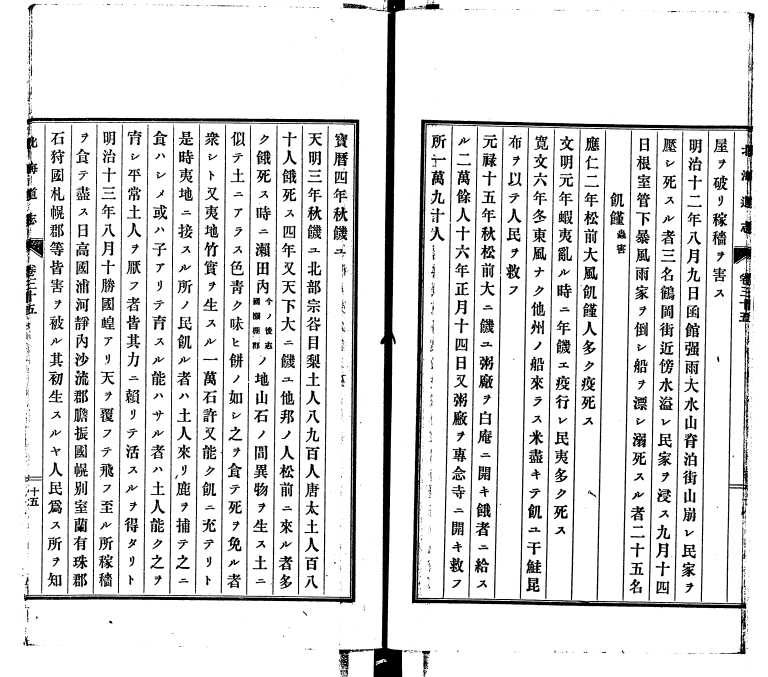 北海道志 卷三十五
屋ヲ破リ稼穡ヲ害ス
明治十二年八月九日函館强雨大水山脊泊街山崩レ民家ヲ
壓シ死スル者三名鶴岡街近傍水溢レ民家ヲ浸ス九月十四
日根室管下暴風雨家ヲ倒シ船ヲ漂シ溺死スル者二十五名
飢饉 蟲害
應仁二年松前大風飢饉人多ク疫死ス
文明元年蝦夷亂ル時ニ年饑ヱ疫行レ民夷多ク死ス
寬文六年冬東風ナク他州ノ船來ラス米盡キテ飢ユ干鮭昆
布ヲ以テ人民ヲ救フ
元祿十五年秋松前大ニ饑ユ粥廠ヲ白庵ニ開キ餓者ニ給ス
ル二萬餘人十六年正月十四日又粥廠ヲ專念寺ニ開キ救フ
所一萬九千人
寶曆四年秋饑ユ
天明三年秋饑ユ北部宗谷目梨土人八九百人唐太土人百八
十人餓死ス四年又天下大ニ饑ユ他邦ノ人松前ニ來ル者多
ク餓死ス時ニ瀨田內 今ノ後志國瀨棚郡 ノ地山石ノ間異物ヲ生ス土ニ
似テ土ニアラス色靑ク味ヒ餅ノ如シ之ヲ食テ死ヲ免ル者
衆シト又夷地竹實ヲ生スル一萬石許又能ク飢ニ充テリト
是時夷地ニ接スル所ノ民飢ル者ハ土人來リ鹿ヲ捕テ之ニ
食ハシメ或ハ子アリテ育スル能ハサル者ハ土人能ク之ヲ
育シ平常土人ヲ厭フ者皆其力ニ賴リテ活スルヲ得タリト
明治十三年八月十勝國蝗アリ天ヲ覆フテ飛フ至ル所稼穡
ヲ食テ盡ス日高國浦河靜內沙流郡膽振國幌別室蘭有珠郡
石狩國札幌郡等皆害ヲ被ル其初生スルヤ人民爲ス所ヲ知
北海道志 卷三十五 十五